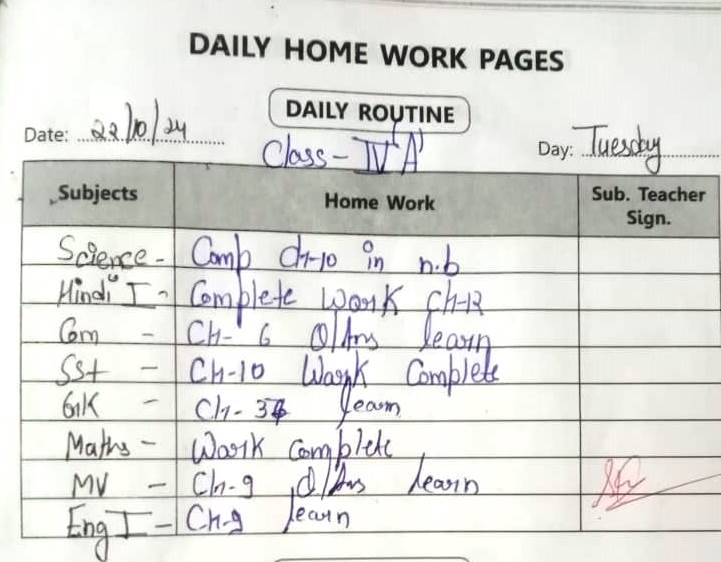 DAILY HOME WORK PAGES
DAILY ROUTINE
Date: 22/10/24
Class - IV 'A'
Day: Tuesday
Subjects Home Work Sub. Teacher Sign.
Science - Comp Ch-10 in n.b
Hindi I - Complete Work Ch-12
Com - Ch- 6 Q/Ans learn
SSt - Ch-10 Work Complete
GK - Ch- learn
Maths - Work Complete
MV - Ch-9 Q/Ans learn
Eng I - Ch-9 learn